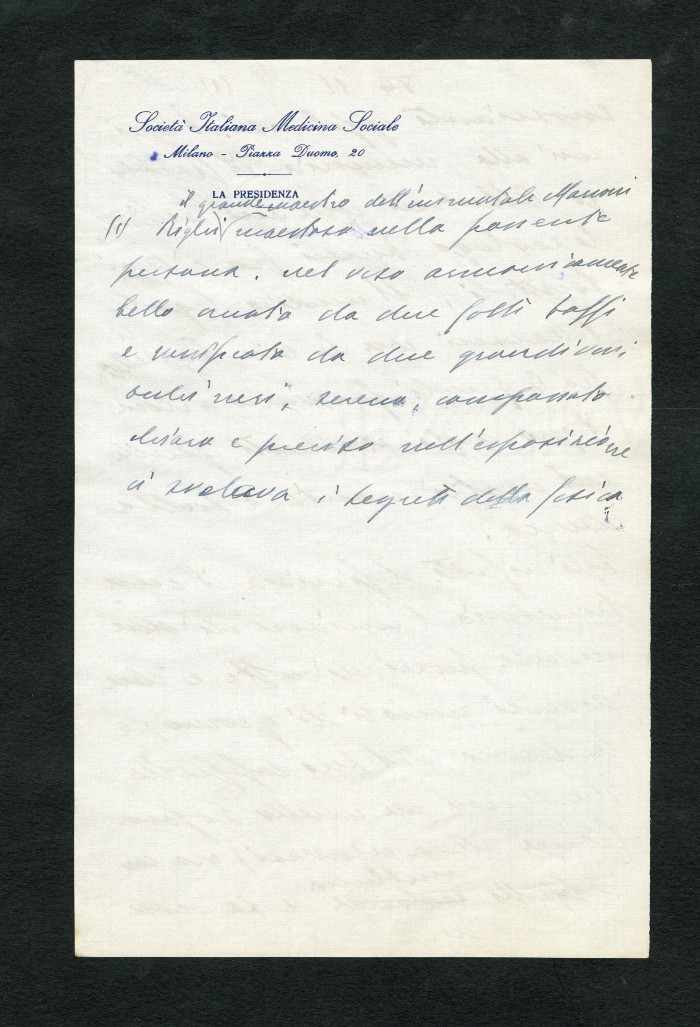 Società Italiana Medicina Sociale
Milano - Piazza Duomo, 20
LA PRESIDENZA
il grande maestro dell'immortale Marconi
(1) Righi maestoso nella possente
persona. nel viso armonicamente
bello ornato da due folti baffi
e da due grandi
neri, sereno, compassato
chiaro e preciso nell'esposizione
ci svelava i segreti della fisica